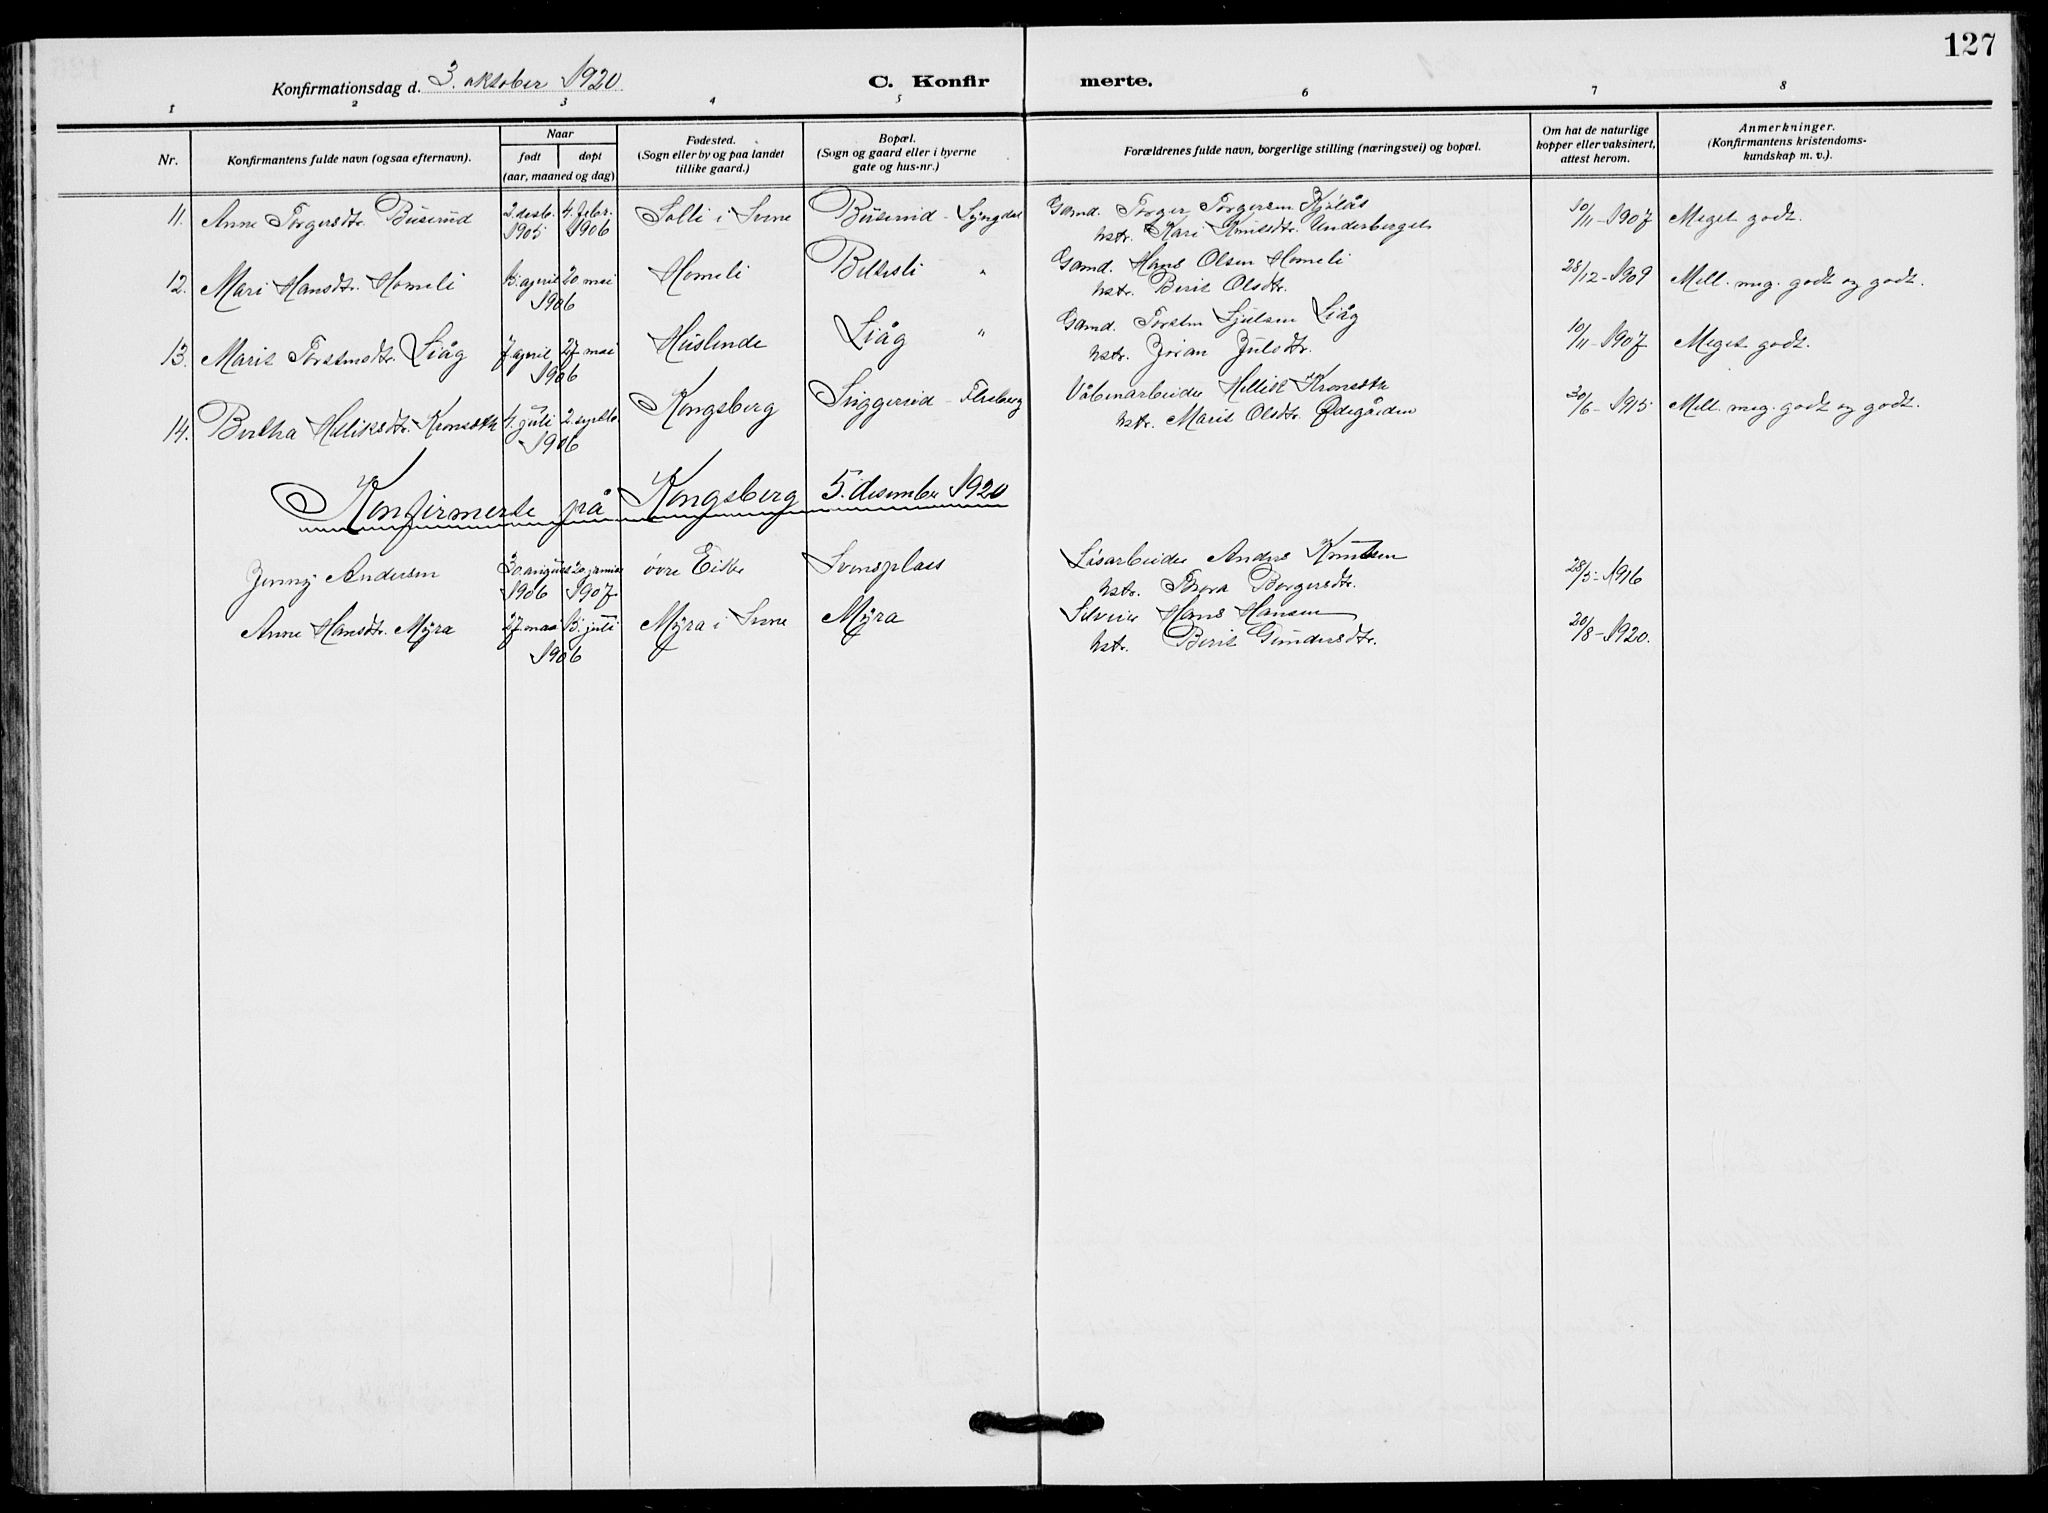 127
Konfirmationsdag d. 3. oktober 1920. C. Konfir merte.
1 2 3 4 5 6 7 8
Nr. Konfirmantens fulde navn (ogsaa efternavn). Naar født døpt (aar, maaned og dag) Fødested. (Sogn eller by og paa landet tillike gaard.) Bopæl. (Sogn og gaard eller i byerne gate og hus-nr.) Forældrenes fulde navn, borgerlige stilling (næringsvei) og bopæl. Om hat de naturlige kopper eller vaksinert, attest herom. Anmerkninger. (Konfirmantens kristendoms-kundskap m. v.).
11. Anne Torgersdtr. Buserud 2. desb. 1905 4. febr. 1906 Solli i Svene Buserud - Lyngdal Gamd. Torger Torgersen Kjølås 10/11-1907 Meget godt.
hstr. Kari Knutsdtr. Underberget
12. Mari Hansdtr. Homeli 13. april 20. mai 1906 Homeli " Gamd. Hans Olsen Homeli 28/12-1909 Mell. meg. godt og godt.
hstr. Berit Olsdtr.
13. Marit Torstensdtr. Liåg 7 april 27 mai 1906 Liåg " Gamd. Torsten Liåg 10/11-1907 Meget godt.
hstr. Jøran Julsdtr.
14. Bertha Helliksdtr. 4. juli 2. septb. 1906 Kongsberg - Flesberg Våbenarbeider Hellik 30/6-1915 Mell. meg. godt og godt.
hstr. Marit Olsdtr. Ødegården
Konfirmerte på Kongsberg 5. desember 1920
Jenny Andersen 30 august 1906 20 januar 1907 øvre Eiker Svensplass Løsarbeider Anders Knutsen 28/5-1916
hstr. Thora Borgersdtr.
Anne Hansdtr. Myra 27 mai 15. juli 1906 Myra i Svene Myra Selveier Hans Hansen 20/8-1920.
hstr. Berit Gundersdtr.